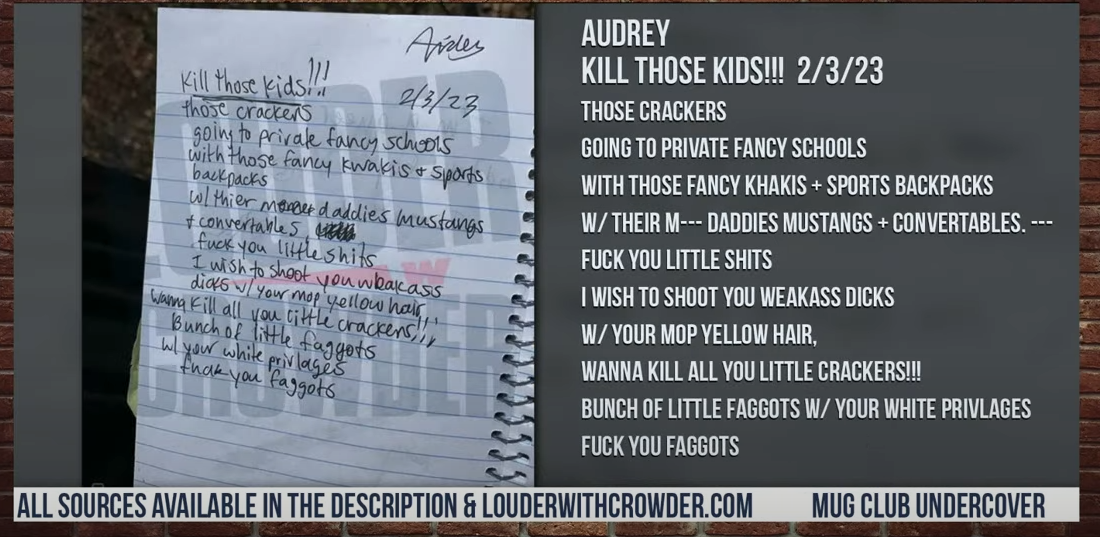 Aiden
Kill those kids!!!
2/3/23
those crackers
going to private fancy schools
with those fancy kwakis + sports
backpacks
w/ thier daddies mustangs
+ convertables
fuck you little shits
I wish to shoot you wbakass
dicks w/ your mop yellow hair,
wanna kill all you little crackers!!!
Bunch of little faggots
w/ your white privlages
fuck you faggots
AUDREY
KILL THOSE KIDS!!! 2/3/23
THOSE CRACKERS
GOING TO PRIVATE FANCY SCHOOLS
WITH THOSE FANCY KHAKIS + SPORTS BACKPACKS
W/ THEIR M--- DADDIES MUSTANGS + CONVERTABLES. ---
FUCK YOU LITTLE SHITS
I WISH TO SHOOT YOU WEAKASS DICKS
W/ YOUR MOP YELLOW HAIR,
WANNA KILL ALL YOU LITTLE CRACKERS!!!
BUNCH OF LITTLE FAGGOTS W/ YOUR WHITE PRIVLAGES
FUCK YOU FAGGOTS
ALL SOURCES AVAILABLE IN THE DESCRIPTION & LOUDERWITHCROWDER.COM
MUG CLUB UNDERCOVER